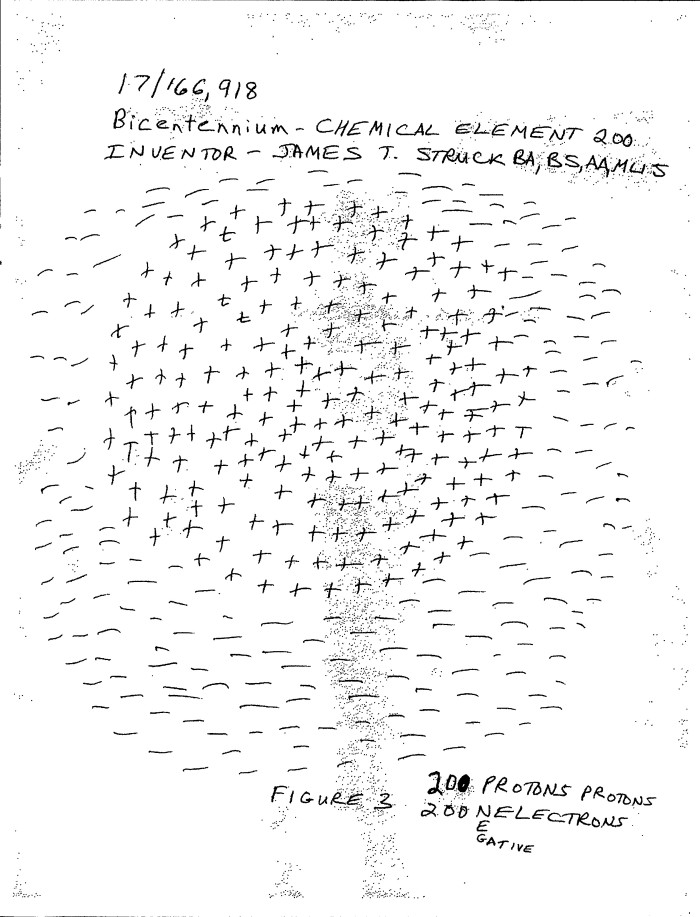 17/166,918
Bicentennium - CHEMICAL ELEMENT 200
INVENTOR - JAMES T. STRUCK BA, BS, AA, MLIS
FIGURE 3
200 PROTONS PROTONS
200 NELECTRONS
E
GATIVE